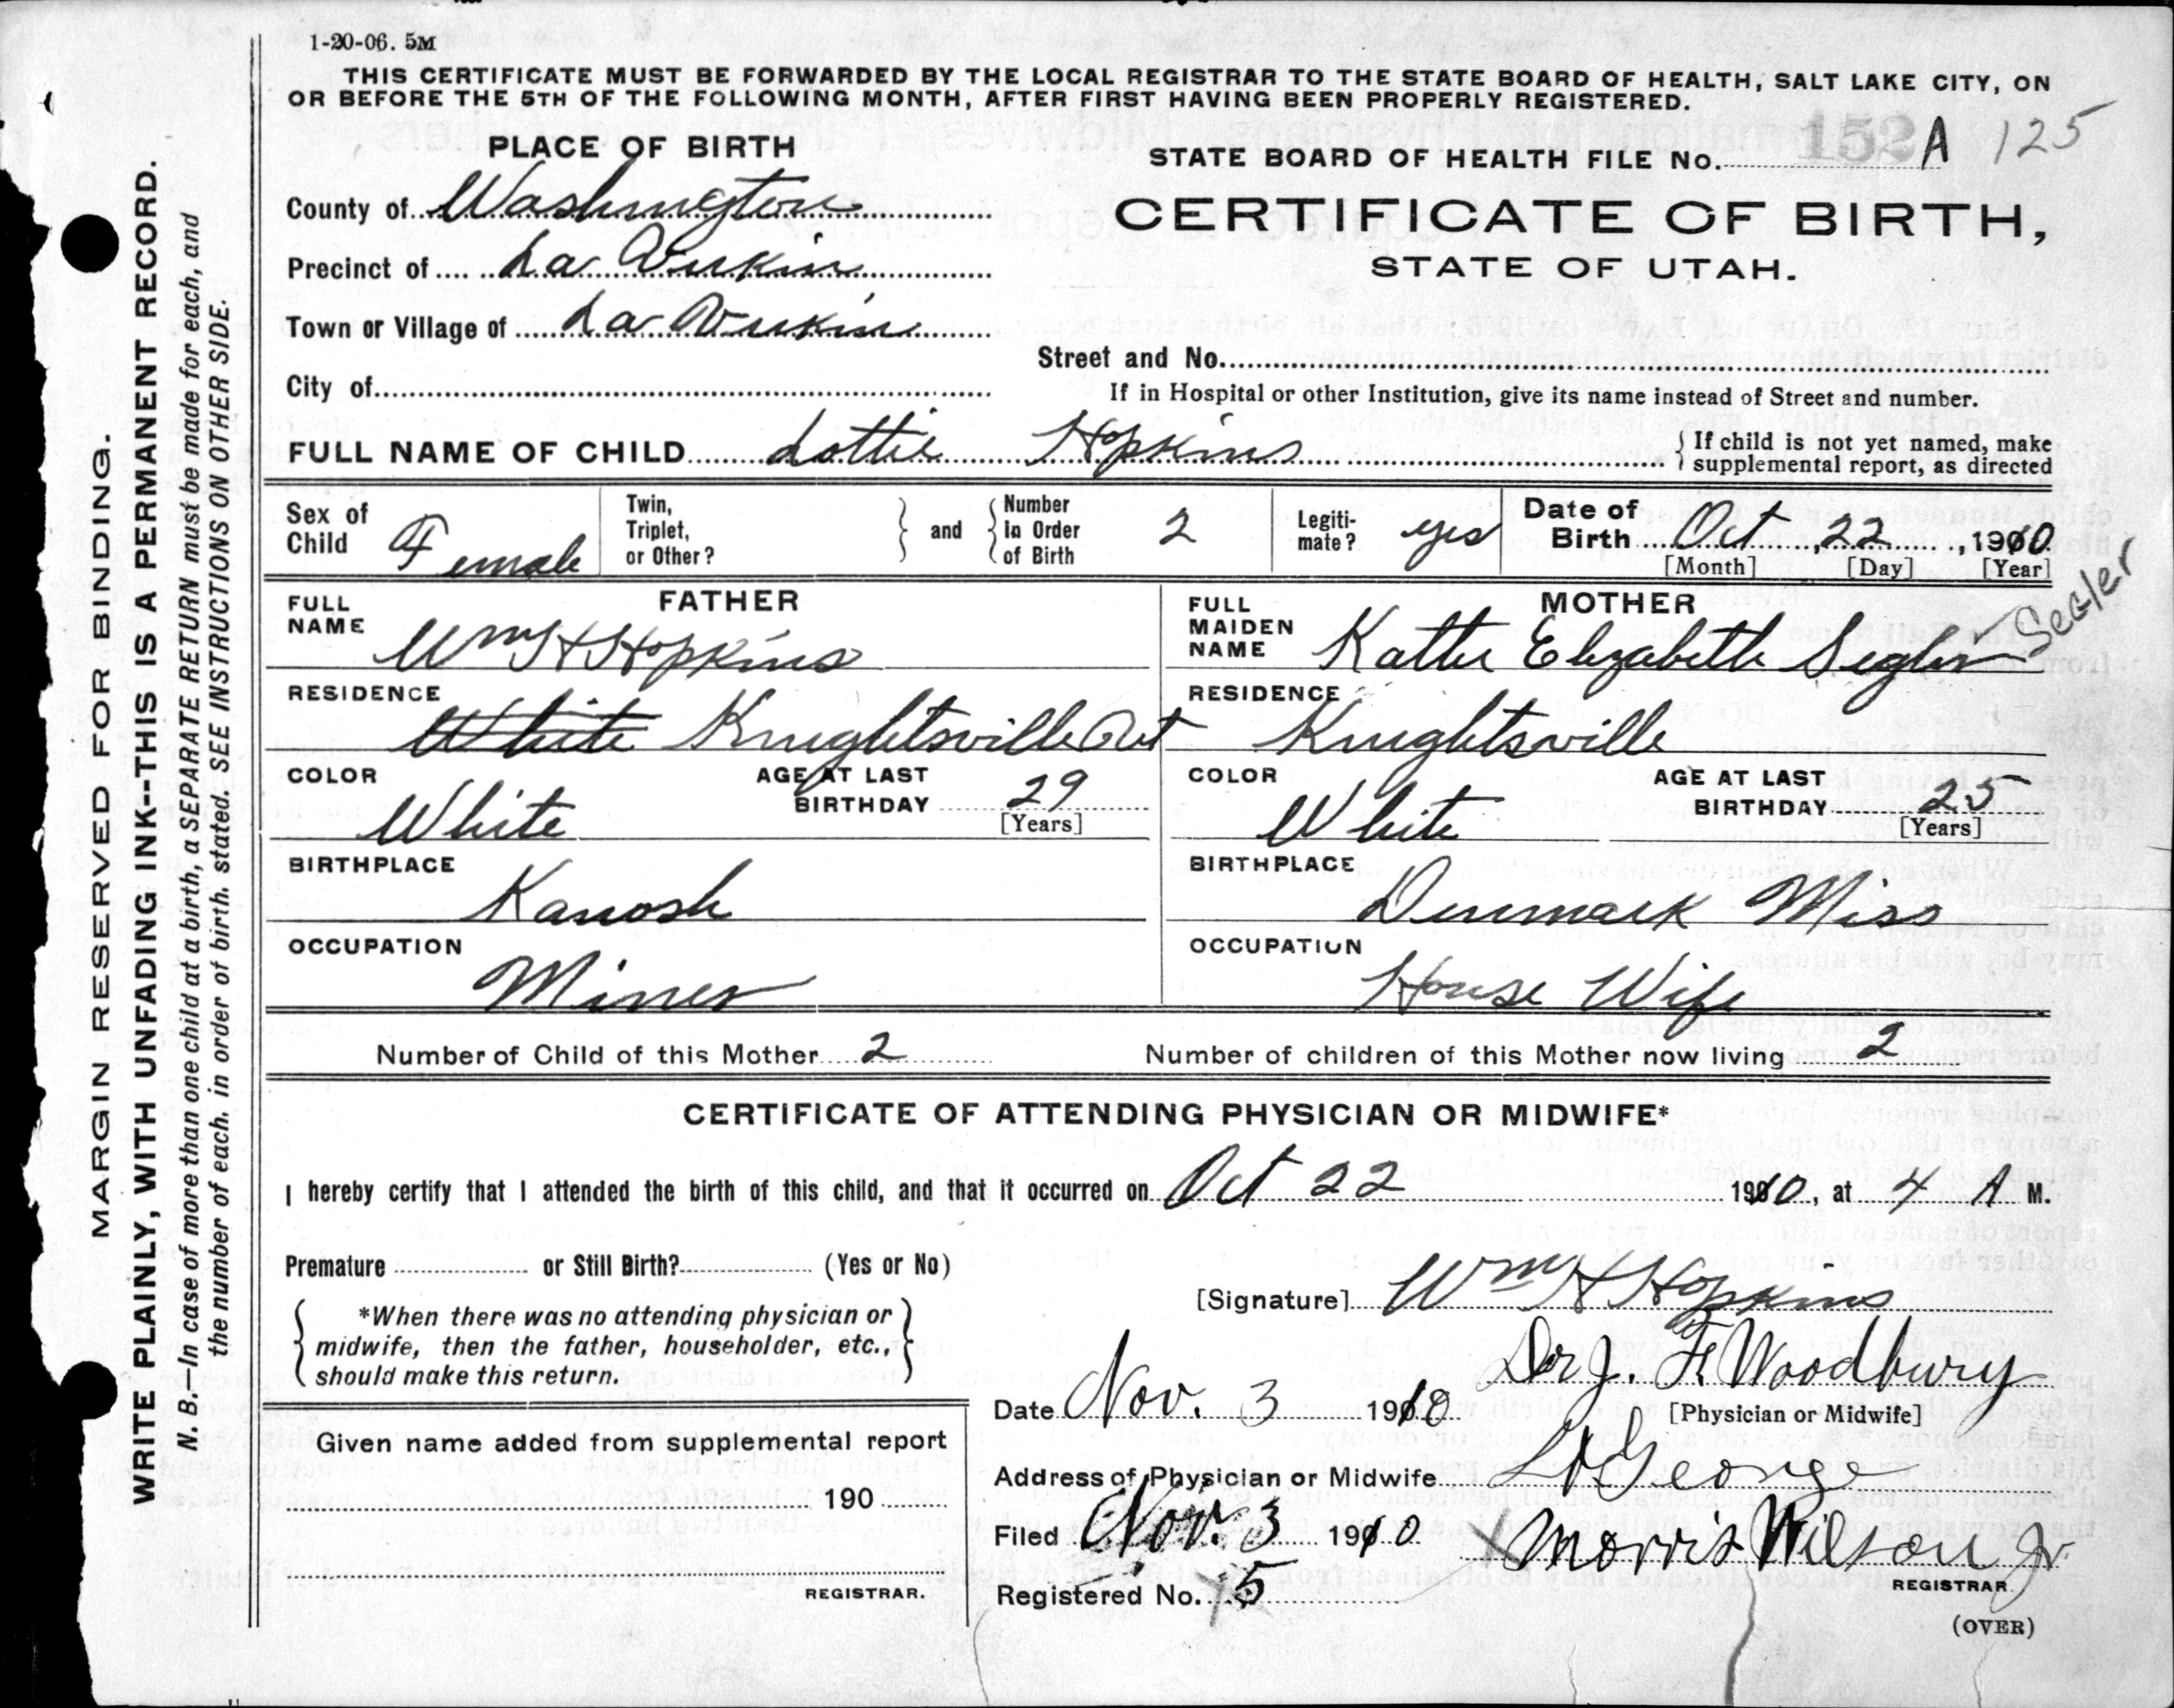 1-20-06. 5M
THIS CERTIFICATE MUST BE FORWARDED BY THE LOCAL REGISTRAR TO THE STATE BOARD OF HEALTH, SALT LAKE CITY, ON
OR BEFORE THE 5TH OF THE FOLLOWING MONTH, AFTER FIRST HAVING BEEN PROPERLY REGISTERED.
PLACE OF BIRTH
STATE BOARD OF HEALTH FILE No. 152 A 125
County of Washington
CERTIFICATE OF BIRTH,
STATE OF UTAH.
Precinct of La Virkin
Town or Village of La Virkin
Street and No.
City of
If in Hospital or other Institution, give its name instead of Street and number.
FULL NAME OF CHILD Lottie Hopkins
If child is not yet named, make
supplemental report, as directed
Sex of Child Female
Twin, Triplet, or Other?
and
Number in Order of Birth 2
Legiti-mate? yes
Date of Birth Oct, 22, 1910
[Month] [Day] [Year]
FATHER
FULL NAME Wm H Hopkins
MOTHER
FULL MAIDEN NAME Kattie Elizabeth Segler Sealer
RESIDENCE White Knightsville Ut
RESIDENCE Knightsville
COLOR White
AGE AT LAST BIRTHDAY 29
[Years]
COLOR White
AGE AT LAST BIRTHDAY 25
[Years]
BIRTHPLACE Kanosh
BIRTHPLACE Denmark Miss
OCCUPATION Miner
OCCUPATION House Wife
Number of Child of this Mother 2
Number of children of this Mother now living 2
CERTIFICATE OF ATTENDING PHYSICIAN OR MIDWIFE*
I hereby certify that I attended the birth of this child, and that it occurred on Oct 22 1910, at 4 A M.
Premature or Still Birth? (Yes or No)
[Signature] Wm H Hopkins
*When there was no attending physician or
midwife, then the father, householder, etc.,
should make this return.
Dr J. F. Woodbury
Date Nov. 3 1910
[Physician or Midwife]
Given name added from supplemental report
190
REGISTRAR.
Address of Physician or Midwife St George
Filed Nov. 3 1910
Morris Wilson Jr.
REGISTRAR.
Registered No. 5
(OVER)
MARGIN RESERVED FOR BINDING.
WRITE PLAINLY, WITH UNFADING INK--THIS IS A PERMANENT RECORD.
N. B.—In case of more than one child at a birth, a SEPARATE RETURN must be made for each, and
the number of each, in order of birth, stated. SEE INSTRUCTIONS ON OTHER SIDE.